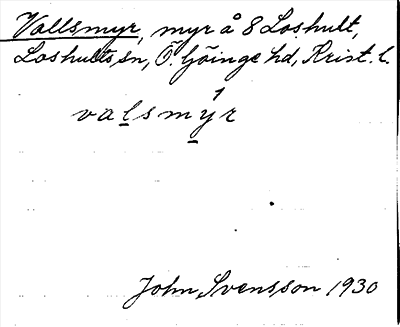 Vallsmyr, myr å 8 Loshult,
Loshults sn, Ö. Göinge hd, Krist. l.
valsmy̱r
John Svensson 1930